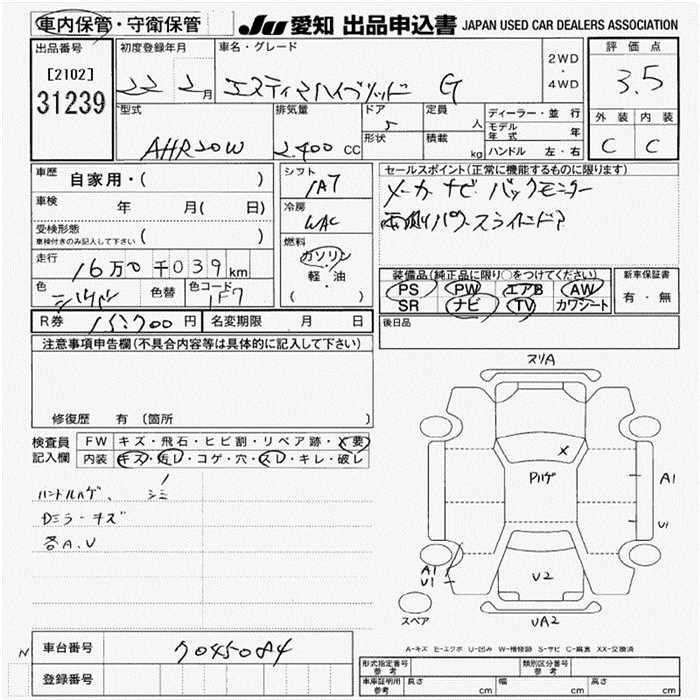 車内保管・守衛保管 JU 愛知 出品申込書 JAPAN USED CAR DEALERS ASSOCIATION
出品番号
[2102]
31239
初度登録年月
22 2月
車名・グレード
エスティマハイブリッド G
2WD
・
4WD
評価点
3.5
外装 内装
C C
型式
AHR20W
排気量
2.400 CC
ドア
5
形状
定員
人
積載
kg
ディーラー・並行
モデル年式 年
ハンドル 左・右
車歴 自家用・( )
車検 年 月( 日)
受検形態
車検付きのみ記入して下さい ( )
走行 16万0千039km
色 シルバー 色替 色コード 1F7
シフト
IA7
冷房
WAC
燃料
ガソリン
・
軽・油
( )
セールスポイント(正常に機能するものに限ります)
メーカーナビ バックモニター
両側パワースライドドア
装備品(純正品に限り○をつけてください)
PS PW エアB AW
SR ナビ TV カワシート
新車保証書
有・無
R券 15,700円 名変期限 月 日
後日品
注意事項申告欄(不具合内容等は具体的に記入して下さい)
修復歴 有 (箇所 )
検査員
記入欄
FW キズ・飛石・ヒビ割・リペア跡・X要
内装 キズ・汚レ・コゲ・穴・スレ・キレ・破レ
ハンドルハゲ、シミ
Dミラーキズ
各A.U
スリA
X
Pハゲ
A1
U1
A1
U1
U2
UA2
スペア
A-キズ E-エクボ U-凹み W-補修跡 S-サビ C-腐食 XX-交換済
N
車台番号 7045084
登録番号
形式指定番号
参考
類別区分番号
参考
車庫証明用
参考
長さ cm 幅 cm 高さ cm